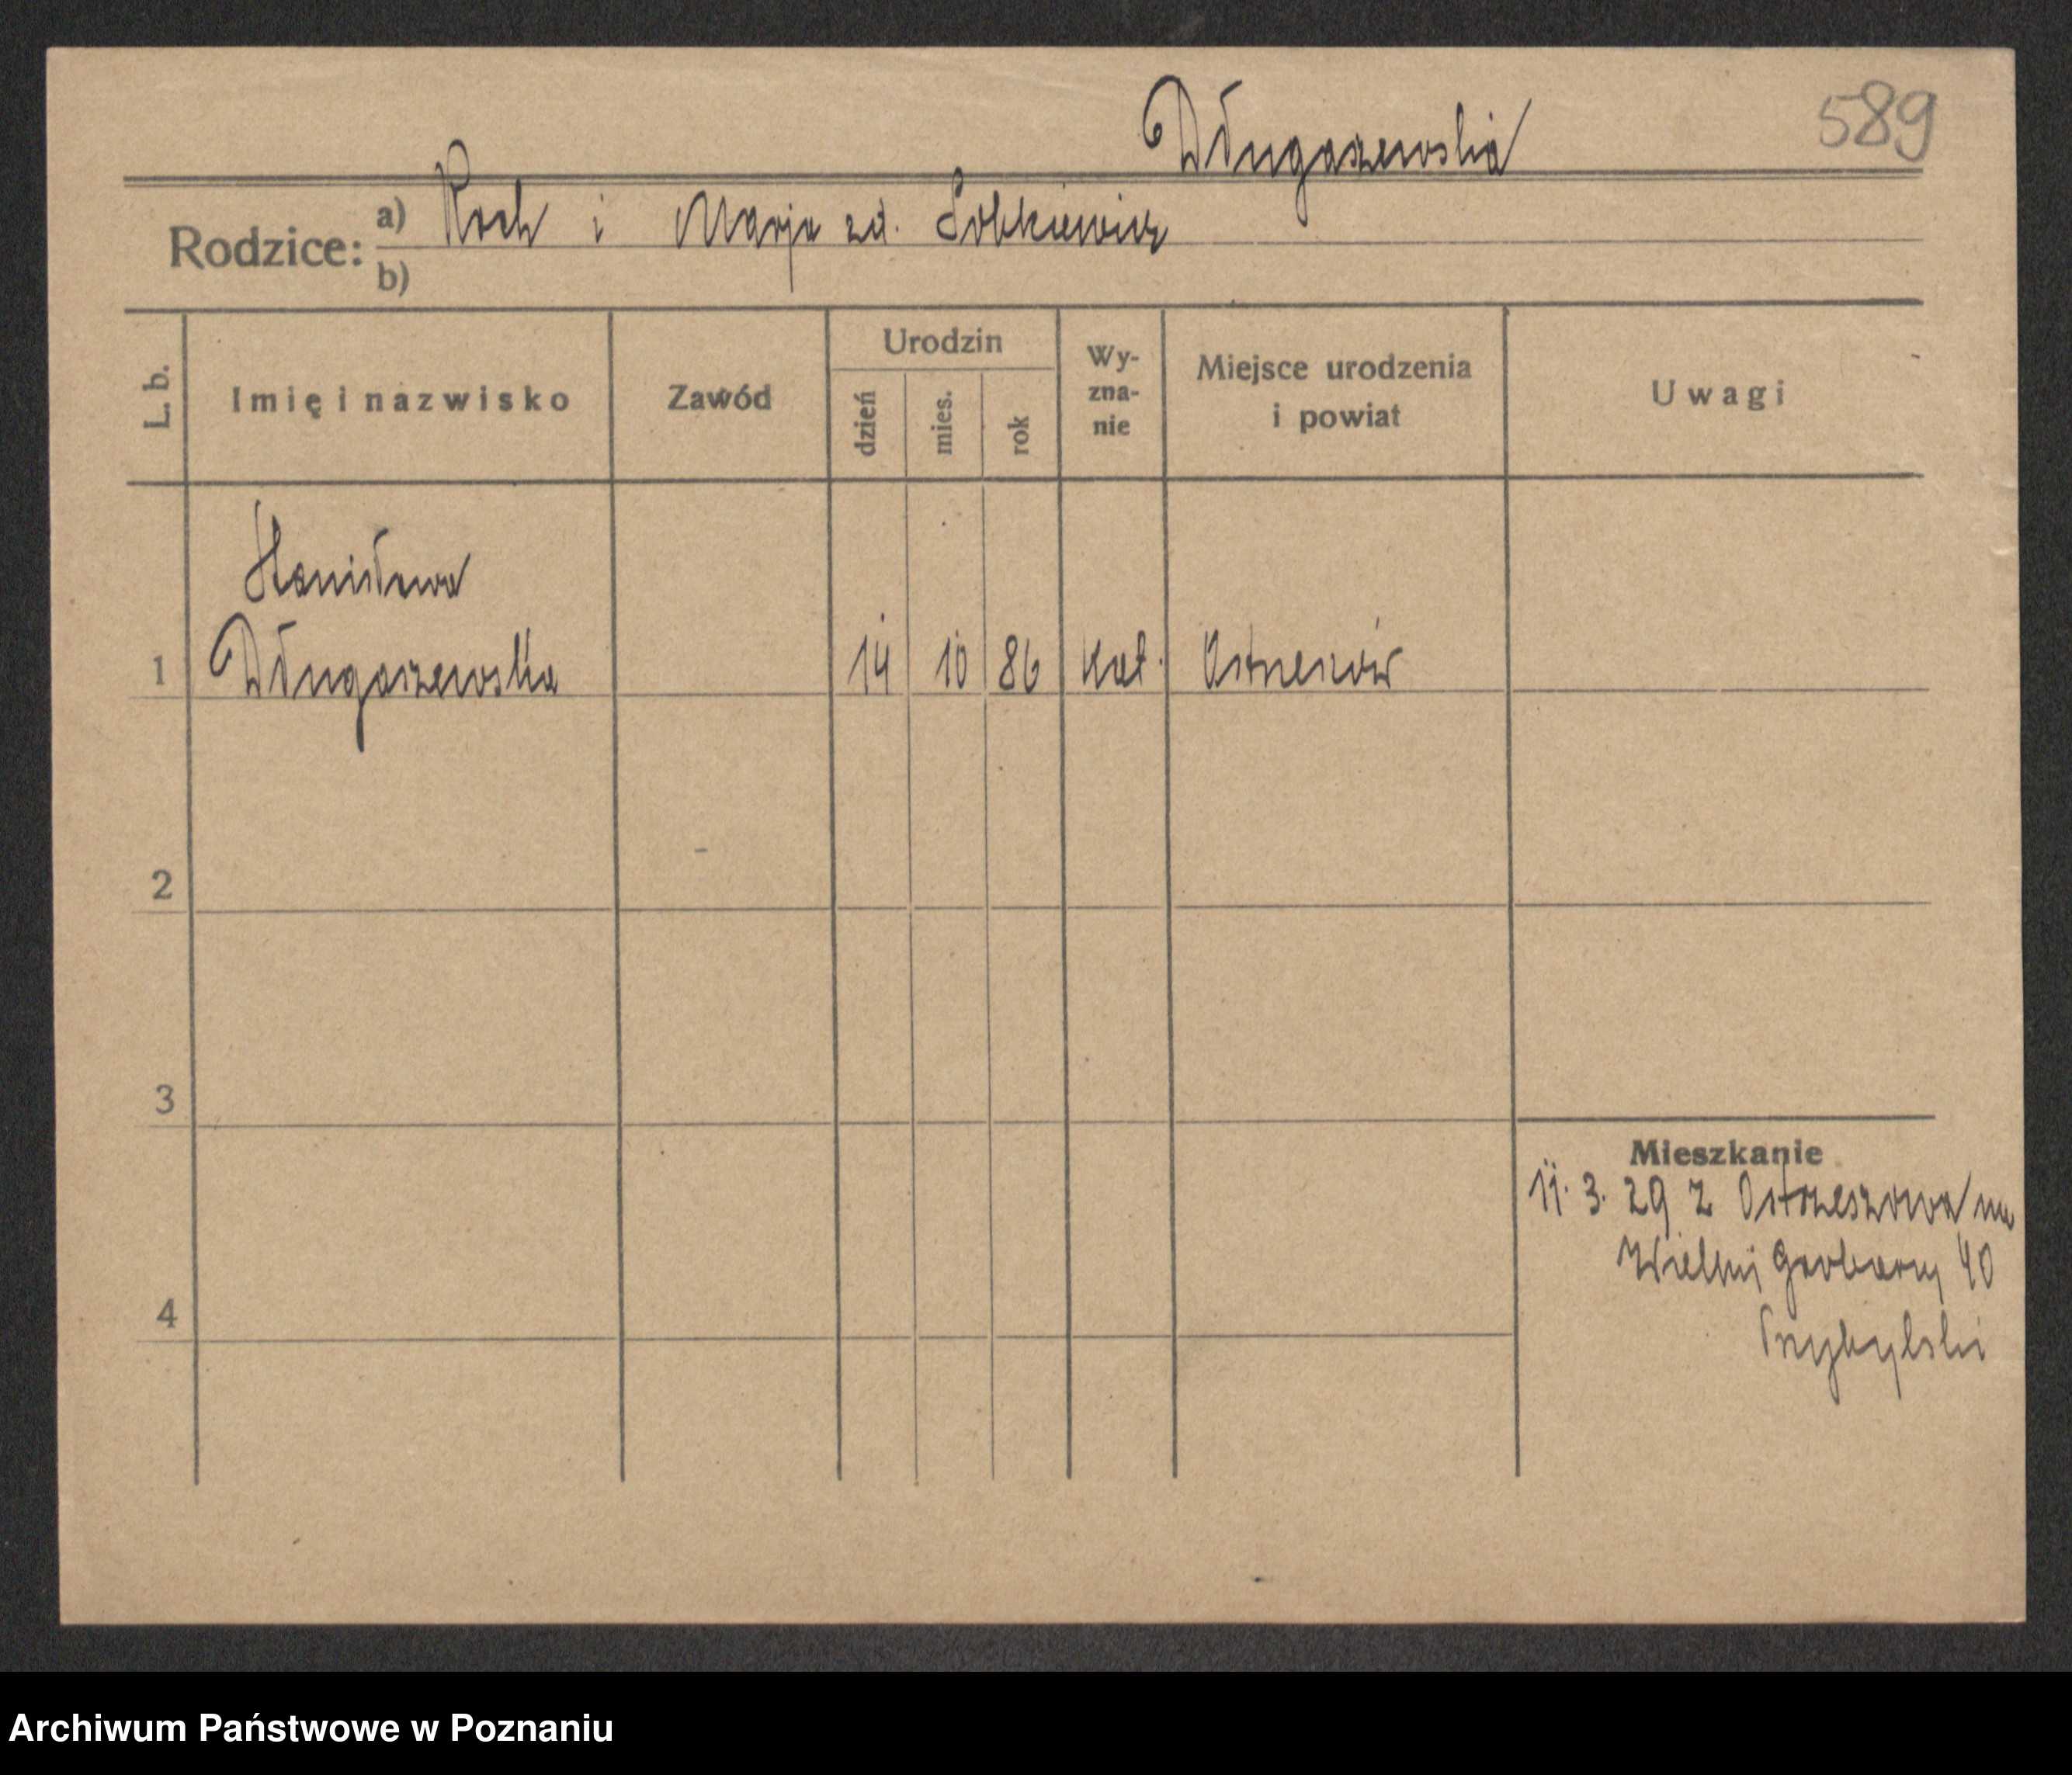 589
Długaszewska
Rodzice: a) Roch i Marja zd. Sobkiewicz
b)
L. b.
Imię i nazwisko
Zawód
Urodzin
dzień
mies.
rok
Wy-
zna-
nie
Miejsce urodzenia
i powiat
Uwagi
Stanisława
1 Długaszewska 14 10 86 kat. Ostrzeszów
2
3
4
Mieszkanie
11. 3. 29 z Ostrzeszowa na
Wielki Garbary 40
Przybylski
Archiwum Państwowe w Poznaniu